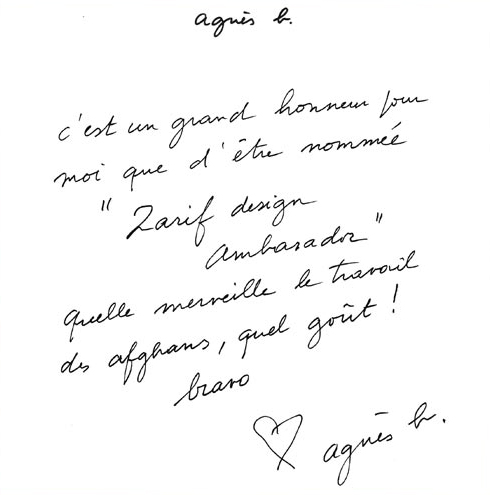 agnès b.
c'est un grand honneur pour
moi que d'être nommée
"Zarif design
Ambasador"
quelle merveille le travail
des afghans, quel goût !
bravo
♡ agnès b.